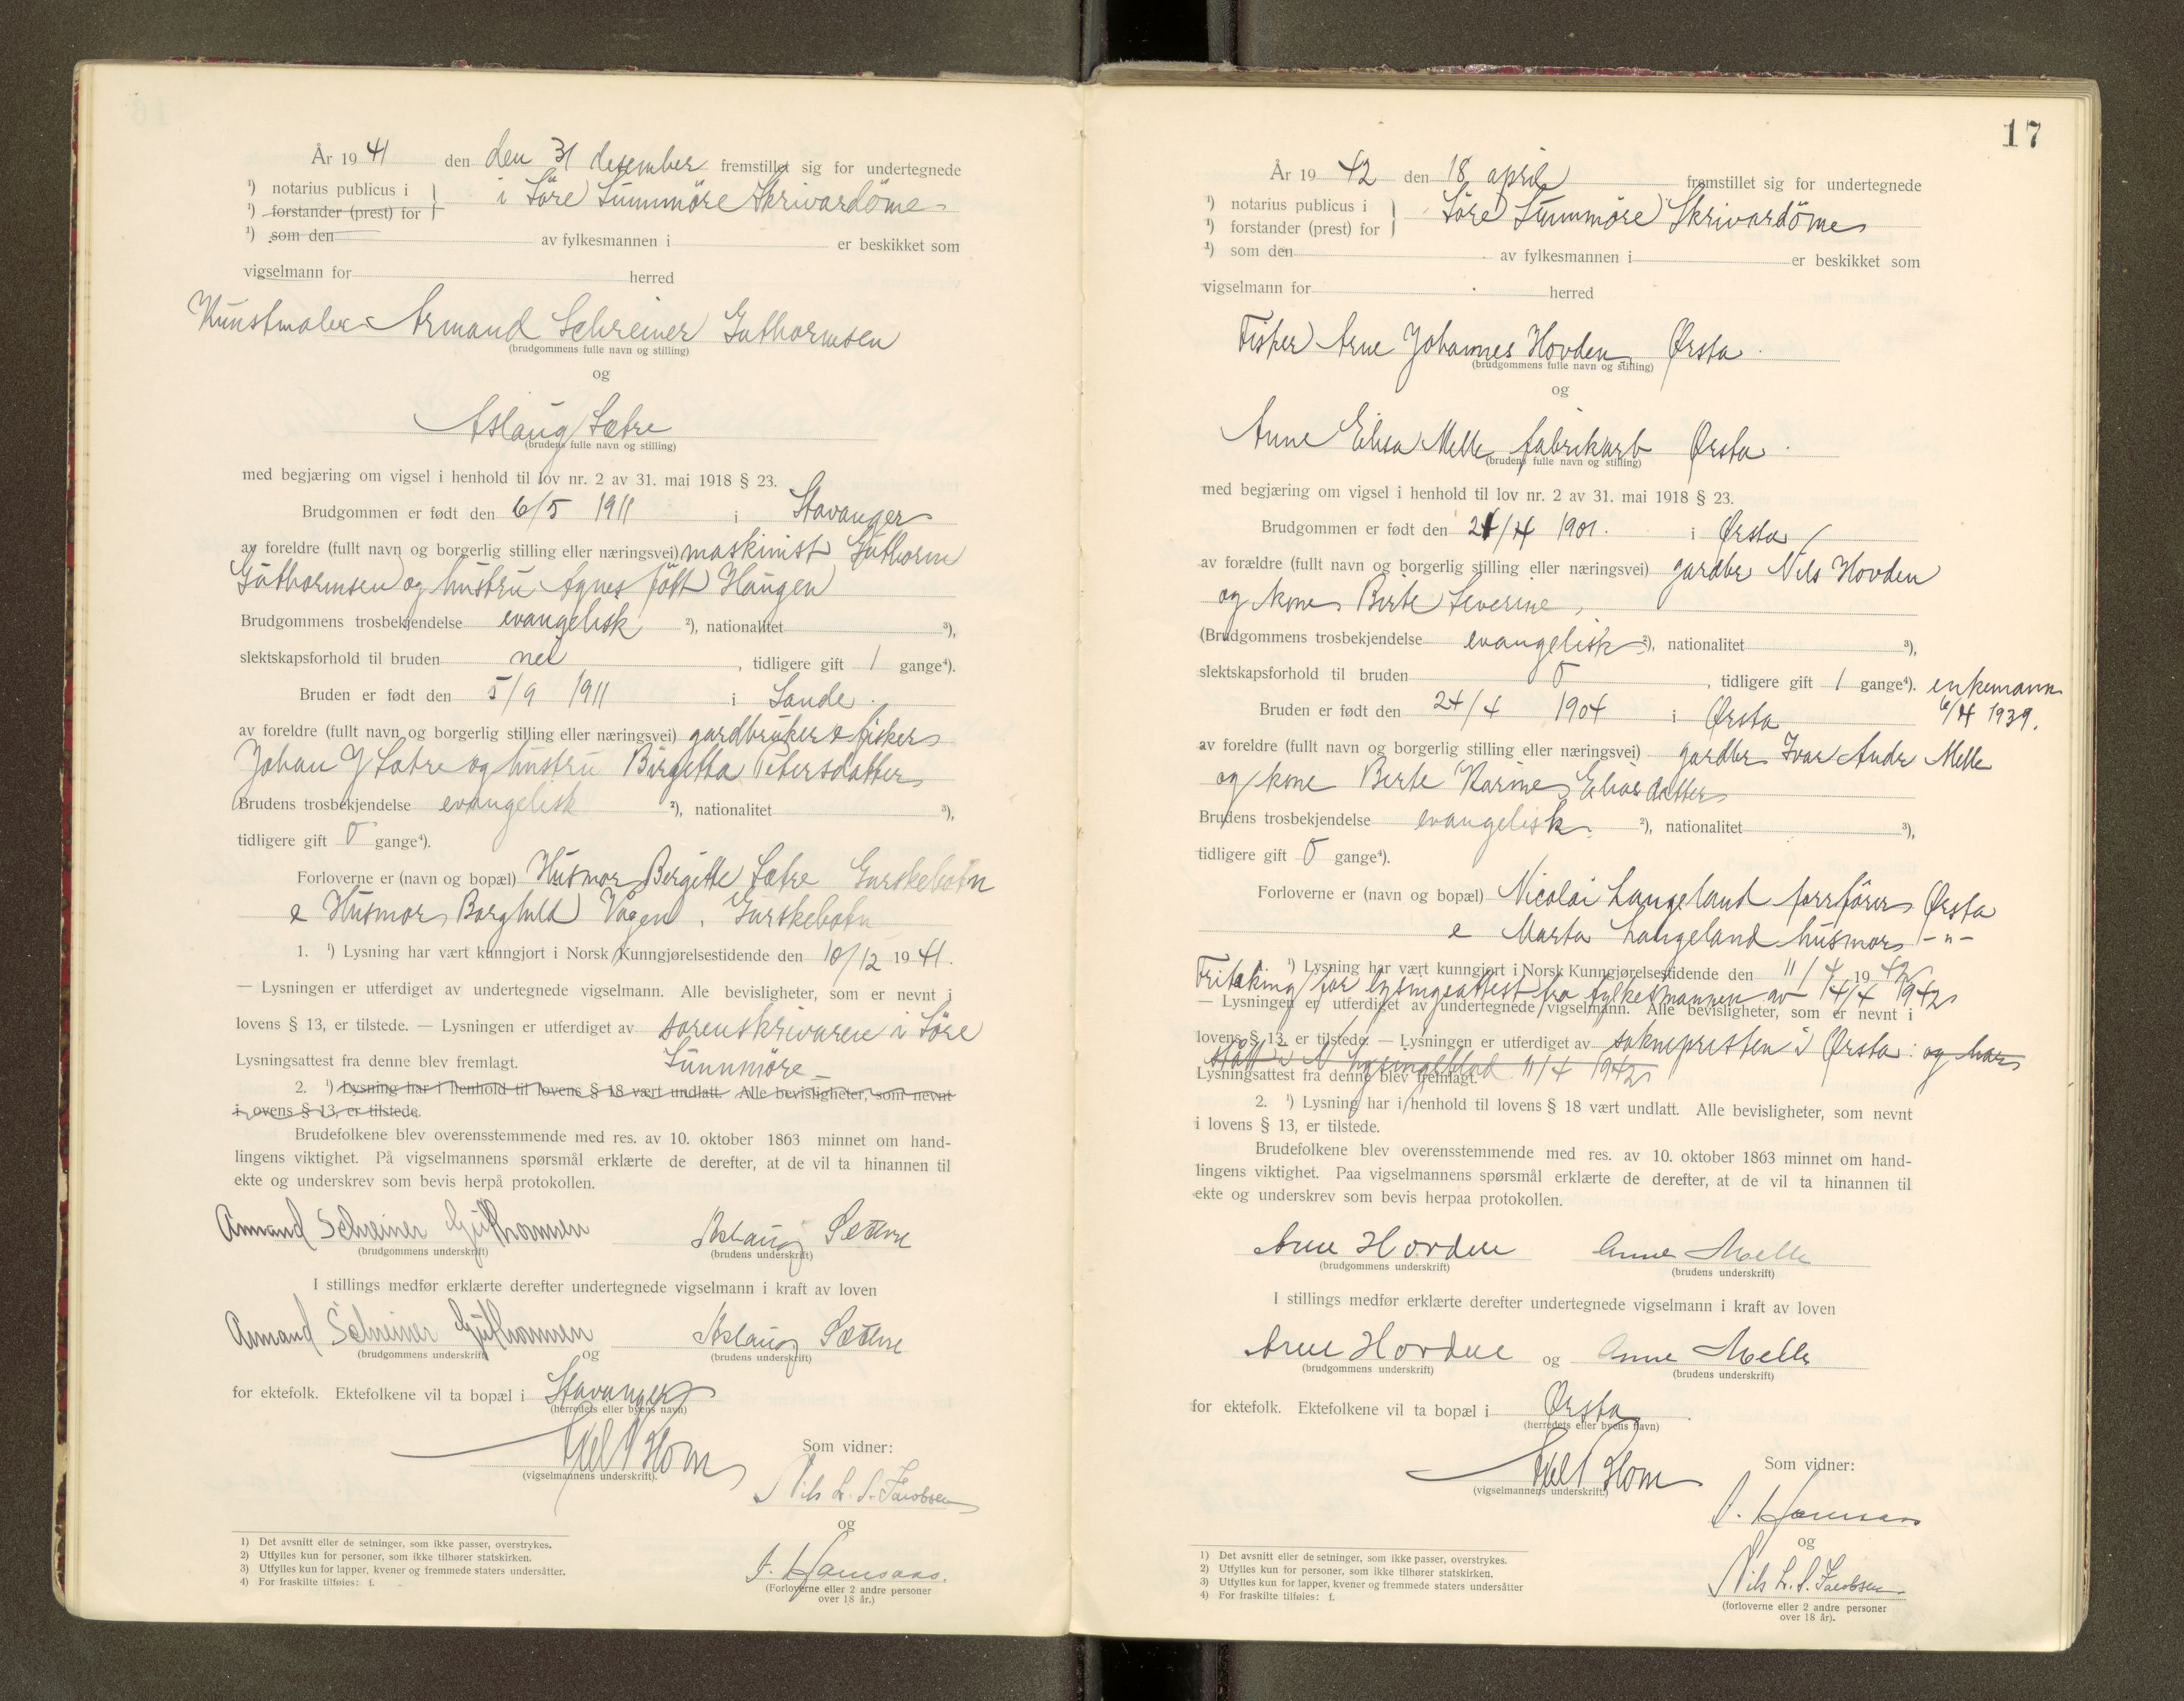 År 19 41 den den 31 desember fremstillet sig for undertegnede
¹) notarius publicus i } i Søre Sunnmöre Skrivardöme
¹) forstander (prest) for
¹) som den av fylkesmannen i er beskikket som
vigselmann for herred
Kunstmaler Armand Schreiner Guthormsen
(brudgommens fulle navn og stilling)
og
Aslaug Sætre
(brudens fulle navn og stilling)
med begjæring om vigsel i henhold til lov nr. 2 av 31. mai 1918 § 23.
Brudgommen er født den 6/5 1911 i Stavanger
av foreldre (fullt navn og borgerlig stilling eller næringsvei) maskinist Guthorm
Guthormsen og hustru Agnes født Haugen
Brudgommens trosbekjendelse evangelisk ²), nationalitet ³),
slektskapsforhold til bruden nei , tidligere gift 1 gange⁴).
Bruden er født den 5/9 1911 i Sande.
av foreldre (fullt navn og borgerlig stilling eller næringsvei) gardbruker & fisker
Johan J Sætre og hustru Birgitta Petersdatter
Brudens trosbekjendelse evangelisk ²), nationalitet ³),
tidligere gift 0 gange⁴).
Forloverne er (navn og bopæl) Husmor Bergitte Sætre Gurskebotn
& Husmor Borghild Vågen, Gurskebotn
1. ¹) Lysning har vært kunngjort i Norsk Kunngjørelsestidende den 10/12 19 41.
— Lysningen er utferdiget av undertegnede vigselmann. Alle bevisligheter, som er nevnt i
lovens § 13, er tilstede. — Lysningen er utferdiget av sorenskrivaren i Söre
Lysningsattest fra denne blev fremlagt. Sunnmöre
2. ¹) Lysning har i henhold til lovens § 18 vært undlatt. Alle bevisligheter, som nevnt
i lovens § 13, er tilstede.
Brudefolkene blev overensstemmende med res. av 10. oktober 1863 minnet om hand-
lingens viktighet. På vigselmannens spørsmål erklærte de derefter, at de vil ta hinannen til
ekte og underskrev som bevis herpå protokollen.
Armand Schreiner Guthormsen Aslaug Sætre
(brudgommens underskrift) (brudens underskrift)
I stillings medfør erklærte derefter undertegnede vigselmann i kraft av loven
Armand Schreiner Guthormsen og Aslaug Sætre
(brudgommens underskrift) (brudens underskrift)
for ektefolk. Ektefolkene vil ta bopæl i Stavanger
(herredets eller byens navn)
Som vidner:
(vigselmannens underskrift).
Nils L. S. Jacobsen
og
(Forloverne eller 2 andre personer
over 18 år.)
1) Det avsnitt eller de setninger, som ikke passer, overstrykes.
2) Utfylles kun for personer, som ikke tilhører statskirken.
3) Utfylles kun for lapper, kvener og fremmede staters undersåtter.
4) For fraskilte tilføies: f.
17
År 19 42 den 18 april fremstillet sig for undertegnede
¹) notarius publicus i } Söre Sunnmöre Skrivardöme
¹) forstander (prest) for
¹) som den av fylkesmannen i er beskikket som
vigselmann for herred
Fisker Arne Johannes Hovden Ørsta.
(brudgommens fulle navn og stilling)
og
Anne Elisa Melle fabrikarb Ørsta.
(brudens fulle navn og stilling)
med begjæring om vigsel i henhold til lov nr. 2 av 31. mai 1918 § 23.
Brudgommen er født den 21/4 1901. i Ørsta
av forældre (fullt navn og borgerlig stilling eller næringsvei) gardbr Nils Hovden
og kone Birte Severine,
(Brudgommens trosbekjendelse evangelisk ²), nationalitet ³),
slektskapsforhold til bruden 0 , tidligere gift 1 gange⁴). enkemann
Bruden er født den 24/4 1904 i Ørsta 6/4 1939.
av foreldre (fullt navn og borgerlig stilling eller næringsvei) gardbr Ivar Andr Melle
og kone Berte Karine Eliasdatter
Brudens trosbekjendelse evangelisk. ²), nationalitet ³),
tidligere gift 0 gange⁴).
Forloverne er (navn og bopæl) Nicolai Langeland forrförer Ørsta
& Marta Langeland husmor -"-
¹) Lysning har vært kunngjort i Norsk Kunngjørelsestidende den 11/4 19 42
Fritaking for lysingsattest fra fylkesmannen av 14/4 1942
— Lysningen er utferdiget av undertegnede vigselmann. Alle bevisligheter, som er nevnt i
lovens § 13, er tilstede. — Lysningen er utferdiget av soknepresten i Ørsta. og har
stått i N Lysingsblad 11/4 1942
Lysningsattest fra denne blev fremlagt.
2. ¹) Lysning har i henhold til lovens § 18 vært undlatt. Alle bevisligheter, som nevnt
i lovens § 13, er tilstede.
Brudefolkene blev overensstemmende med res. av 10. oktober 1863 minnet om hand-
lingens viktighet. Paa vigselmannens spørsmål erklærte de derefter, at de vil ta hinannen til
ekte og underskrev som bevis herpaa protokollen.
Arne Hovden Anne Melle
(brudgommens underskrift) (brudens underskrift)
I stillings medfør erklærte derefter undertegnede vigselmann i kraft av loven
Arne Hovden og Anne Melle
(brudgommens underskrift) (brudens underskrift)
for ektefolk. Ektefolkene vil ta bopæl i Ørsta
(herredets eller byens navn)
Som vidner:
(vigselmannens underskrift.)
og
Nils L. S. Jacobsen
(forloverne eller 2 andre personer
over 18 år).
1) Det avsnitt eller de setninger, som ikke passer, overstrykes.
2) Utfylles kun for personer, som ikke tilhører statskirken.
3) Utfylles kun for lapper, kvener og fremmede staters undersåtter
4) For fraskilte tilføies: f.